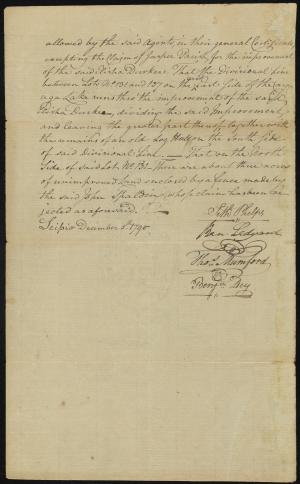 allowed by the said Agents, in their general Certificate
excepting the Claim of Jasper Parish for the improvement
of the said Elisha Durkee. That the Divisional Line
between Lots No. 131 and 137 on the East Side of the Cayu
aga Lake runs thro the improvement of the said
Elisha Durkee, dividing the said Improvement,
and leaving the greater part thereof together with
the remains of an old Log House, on the South Side
of said Divisional Line. — That on the North
Side of said Lot No. 131. There are about three acres
of unimproved Land enclosed by a fence made by
the said John, whose claim has been re
jected as aforesaid.
Scipio December 8. 1790.
Seth Phelps
Ben. Ledyard
Thos. Mumford
Benjn.